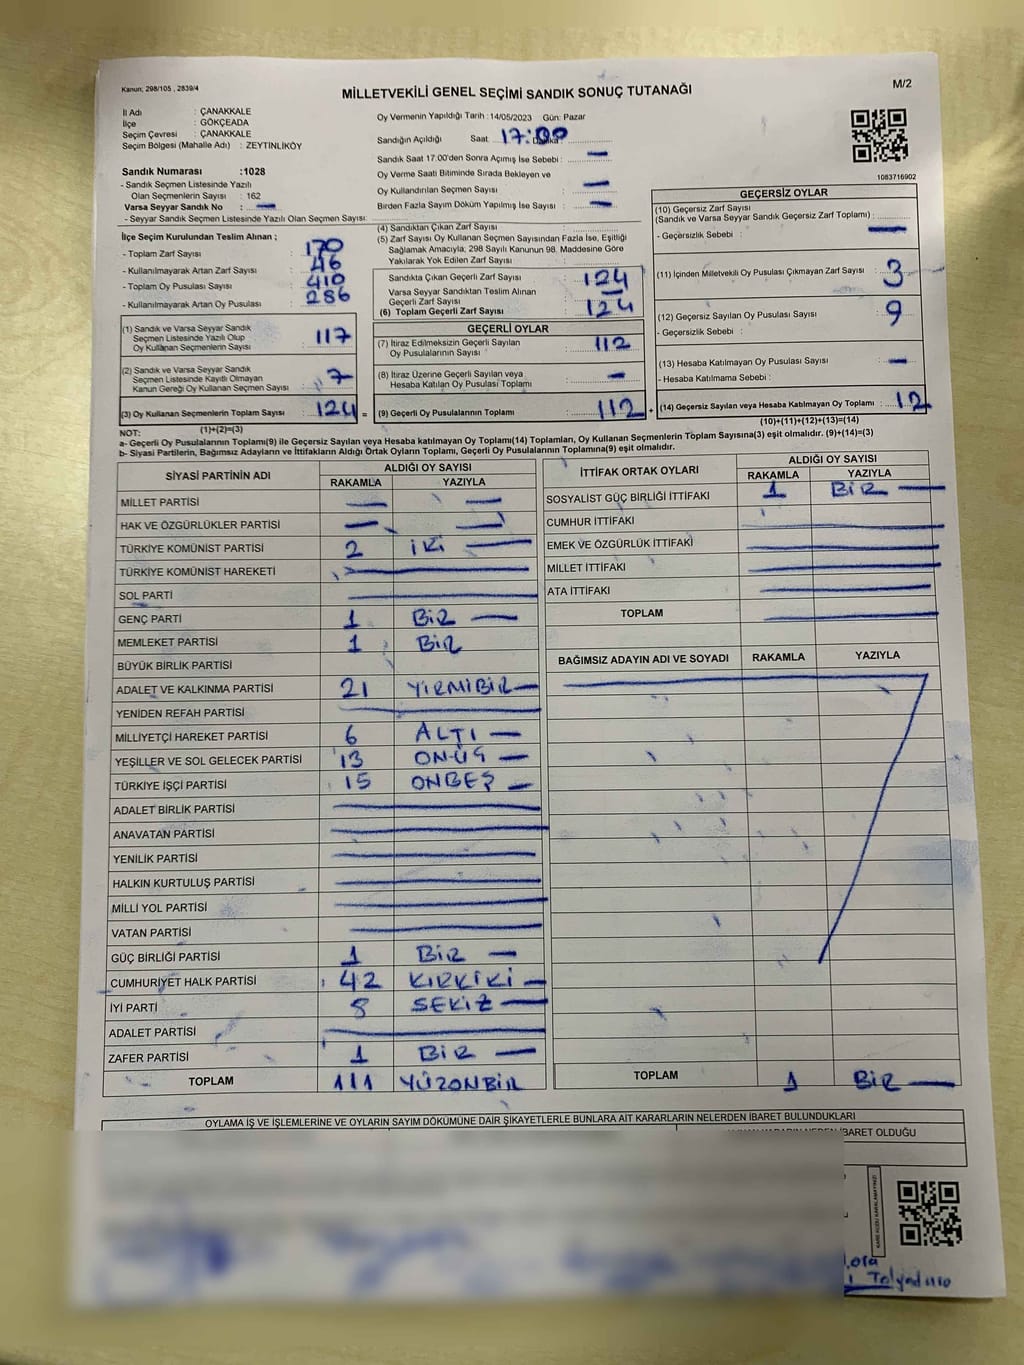 Kanun; 298/105 , 2839/4
MİLLETVEKİLİ GENEL SEÇİMİ SANDIK SONUÇ TUTANAĞI
M/2
İl Adı : ÇANAKKALE
İlçe : GÖKÇEADA
Seçim Çevresi : ÇANAKKALE
Seçim Bölgesi (Mahalle Adı) : ZEYTINLIKÖY
Sandık Numarası :1028
- Sandık Seçmen Listesinde Yazılı
Olan Seçmenlerin Sayısı : 162
Varsa Seyyar Sandık No : —
- Seyyar Sandık Seçmen Listesinde Yazılı Olan Seçmen Sayısı:
Oy Vermenin Yapıldığı Tarih :14/05/2023 Gün: Pazar
Sandığın Açıldığı Saat 17:00
Sandık Saat 17.00'den Sonra Açımış İse Sebebi : —
Oy Verme Saati Bitiminde Sırada Bekleyen ve
Oy Kullandırılan Seçmen Sayısı —
Birden Fazla Sayım Döküm Yapılmış İse Sayısı : —
1083716902
İlçe Seçim Kurulundan Teslim Alınan ;
- Toplam Zarf Sayısı : 170
- Kullanılmayarak Artan Zarf Sayısı : 46
- Toplam Oy Pusulası Sayısı : 410
- Kullanılmayarak Artan Oy Pusulası : 286
(1) Sandık ve Varsa Seyyar Sandık
Seçmen Listesinde Yazılı Olup
Oy Kullanan Seçmenlerin Sayısı 117
(2) Sandık ve Varsa Seyyar Sandık
Seçmen Listesinde Kayıtlı Olmayan
Kanun Gereği Oy Kullanan Seçmen Sayısı : 7
(3) Oy Kullanan Seçmenlerin Toplam Sayısı 124 =
(1)+(2)=(3)
(4) Sandıktan Çıkan Zarf Sayısı :
(5) Zarf Sayısı Oy Kullanan Seçmen Sayısından Fazla İse, Eşitliği
Sağlamak Amacıyla, 298 Sayılı Kanunun 98. Maddesine Göre
Yakılarak Yok Edilen Zarf Sayısı :
Sandıkta Çıkan Geçerli Zarf Sayısı : 124
Varsa Seyyar Sandıktan Teslim Alınan
Geçerli Zarf Sayısı : —
(6) Toplam Geçerli Zarf Sayısı : 124
GEÇERLİ OYLAR
(7) İtiraz Edilmeksizin Geçerli Sayılan
Oy Pusulalarının Sayısı : 112
(8) İtiraz Üzerine Geçerli Sayılan veya
Hesaba Katılan Oy Pusulası Toplamı : —
(9) Geçerli Oy Pusulalarının Toplamı : 112 +
GEÇERSİZ OYLAR
(10) Geçersiz Zarf Sayısı
(Sandık ve Varsa Seyyar Sandık Geçersiz Zarf Toplamı) : —
- Geçersizlik Sebebi :
(11) İçinden Milletvekili Oy Pusulası Çıkmayan Zarf Sayısı : 3
(12) Geçersiz Sayılan Oy Pusulası Sayısı : 9
- Geçersizlik Sebebi :
(13) Hesaba Katılmayan Oy Pusulası Sayısı : —
- Hesaba Katılmama Sebebi :
(14) Geçersiz Sayılan veya Hesaba Katılmayan Oy Toplamı : 12
(10)+(11)+(12)+(13)=(14)
NOT:
a- Geçerli Oy Pusulalarının Toplamı(9) ile Geçersiz Sayılan veya Hesaba katılmayan Oy Toplamı(14) Toplamları, Oy Kullanan Seçmenlerin Toplam Sayısına(3) eşit olmalıdır. (9)+(14)=(3)
b- Siyasi Partilerin, Bağımsız Adayların ve İttifakların Aldığı Ortak Oyların Toplamı, Geçerli Oy Pusulalarının Toplamına(9) eşit olmalıdır.
SİYASİ PARTİNİN ADI ALDIĞI OY SAYISI
RAKAMLA YAZIYLA
MİLLET PARTİSİ — —
HAK VE ÖZGÜRLÜKLER PARTİSİ — —
TÜRKİYE KOMÜNİST PARTİSİ 2 İKİ —
TÜRKİYE KOMÜNİST HAREKETİ —
SOL PARTİ —
GENÇ PARTİ 1 BİR —
MEMLEKET PARTİSİ 1 BİR
BÜYÜK BİRLİK PARTİSİ
ADALET VE KALKINMA PARTİSİ 21 YİRMİBİR —
YENİDEN REFAH PARTİSİ —
MİLLİYETÇİ HAREKET PARTİSİ 6 ALTI —
YEŞİLLER VE SOL GELECEK PARTİSİ 13 ONÜÇ —
TÜRKİYE İŞÇİ PARTİSİ 15 ONBEŞ —
ADALET BİRLİK PARTİSİ —
ANAVATAN PARTİSİ —
YENİLİK PARTİSİ —
HALKIN KURTULUŞ PARTİSİ —
MİLLİ YOL PARTİSİ —
VATAN PARTİSİ —
GÜÇ BİRLİĞİ PARTİSİ 1 BİR —
CUMHURİYET HALK PARTİSİ 42 KIRKİKİ —
İYİ PARTİ 8 SEKİZ —
ADALET PARTİSİ —
ZAFER PARTİSİ 1 BİR —
TOPLAM 111 YÜZONBİR
İTTİFAK ORTAK OYLARI ALDIĞI OY SAYISI
RAKAMLA YAZIYLA
SOSYALİST GÜÇ BİRLİĞİ İTTİFAKI 1 BİR —
CUMHUR İTTİFAKI —
EMEK VE ÖZGÜRLÜK İTTİFAKI —
MİLLET İTTİFAKI —
ATA İTTİFAKI —
TOPLAM —
BAĞIMSIZ ADAYIN ADI VE SOYADI RAKAMLA YAZIYLA
TOPLAM 1 BİR —
OYLAMA İŞ VE İŞLEMLERİNE VE OYLARIN SAYIM DÖKÜMÜNE DAİR ŞİKAYETLERLE BUNLARA AİT KARARLARIN NELERDEN İBARET BULUNDUKLARI
İBARET OLDUĞU